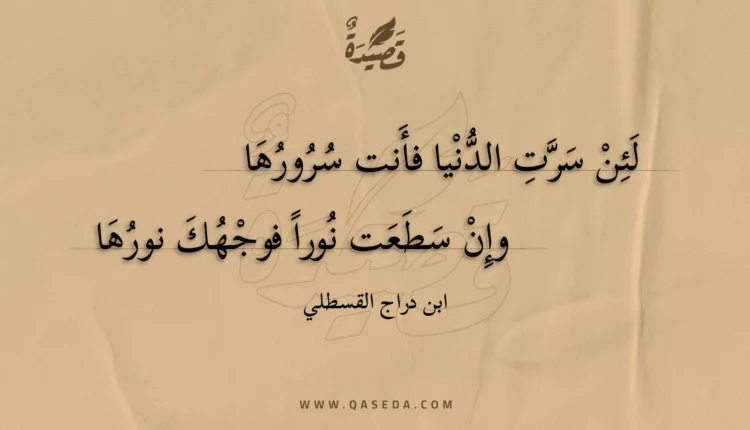 قَصِيدَةٌ
لَئِنْ سَرَّتِ الدُّنْيا فأَنت سُرُورُهَا
وإِنْ سَطَعَت نُوراً فوجْهُكَ نورُهَا
ابن دراج القسطلي
WWW.QASEDA.COM